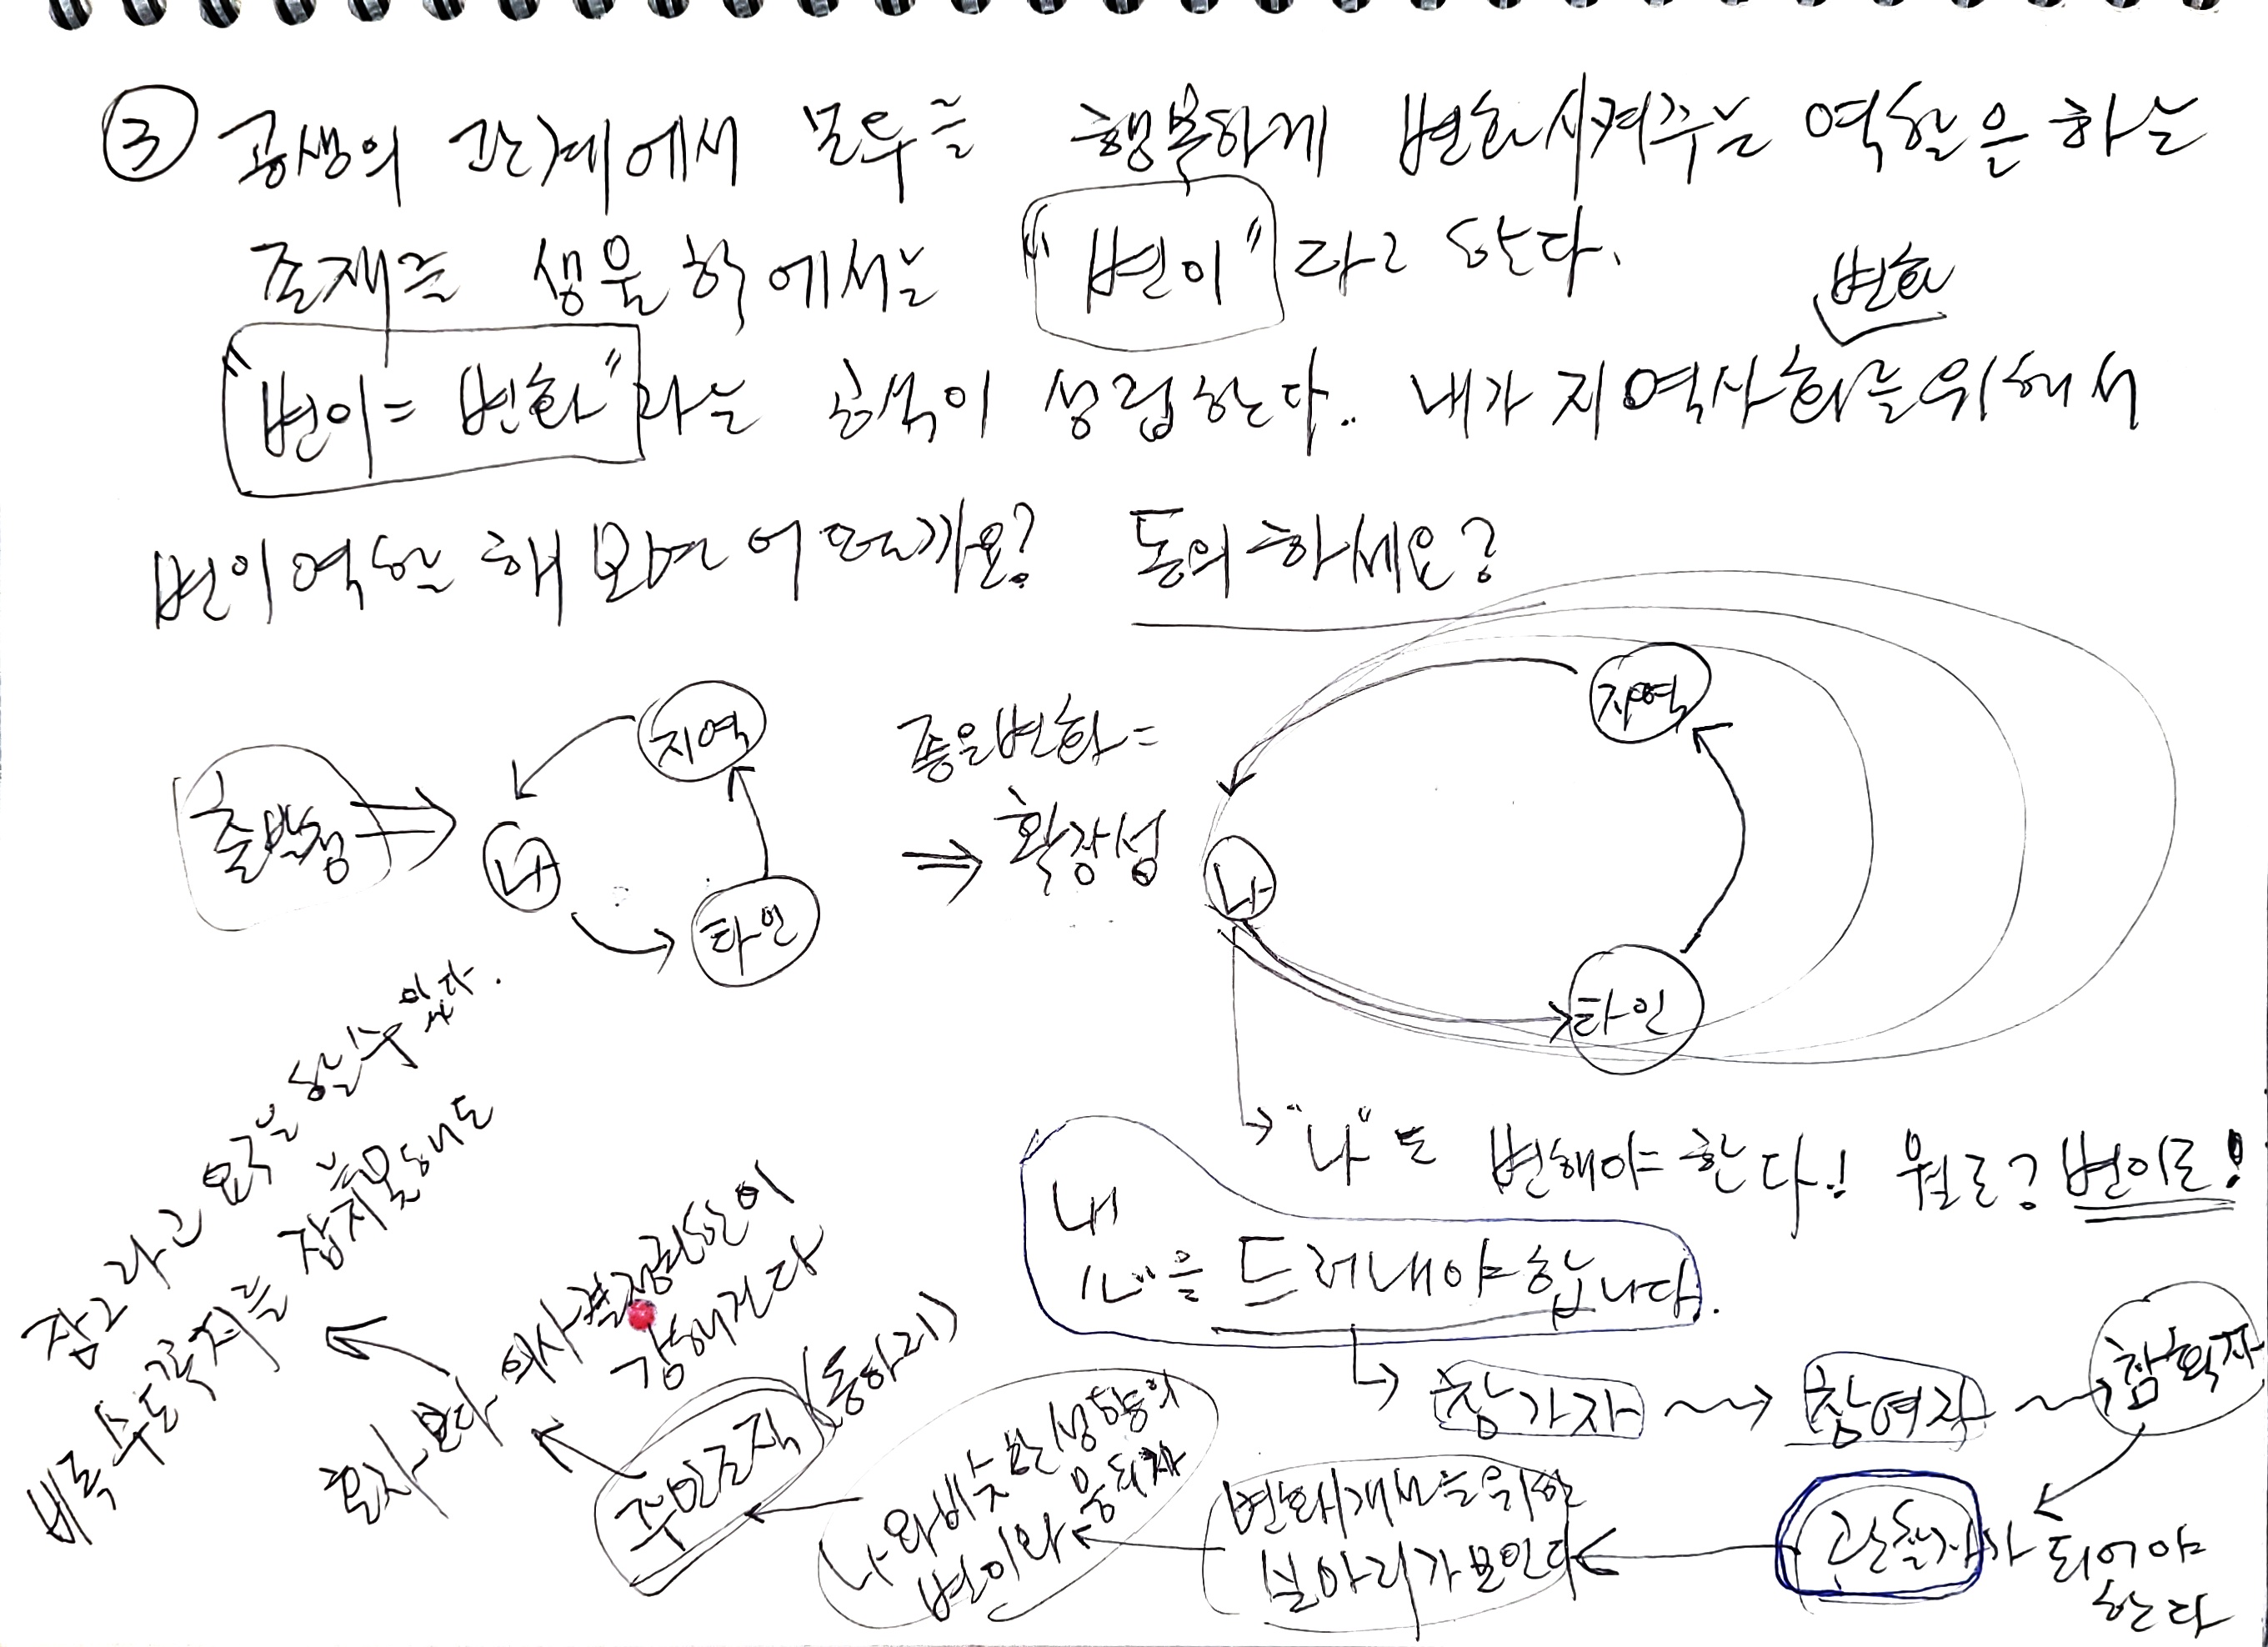 ③ 공생의 관계에서 모두를 행복하게 변화시켜주는 역할을 하는
존재를 생물학에서는 "변이"라고 한다.
변화
"변이 = 변화"라는 공식이 성립한다. 내가 지역사회를 위해서
변이역할 해보면 어떨까요? 동의하세요?
출발점 ⇒
지역
나
타인
좋은변화 =
⇒ 확장성
지역
나
타인
→ "나"도 변해야 한다! 뭘로? 변이로!
내
"心"을 드러내야합니다.
↳ 참가자 → 참여자 → 참획자
관찰자가 되어야
한다
변화개선을 위한
실마리가 보인다
나와 비슷한 성향의
변이와 뭉치자
주민조직 (동아리)
혼자보다 의사결정권한이
강해진다
비록 수도꼭지를 잡지못해도
잡그라고 요구는 할수 있다.